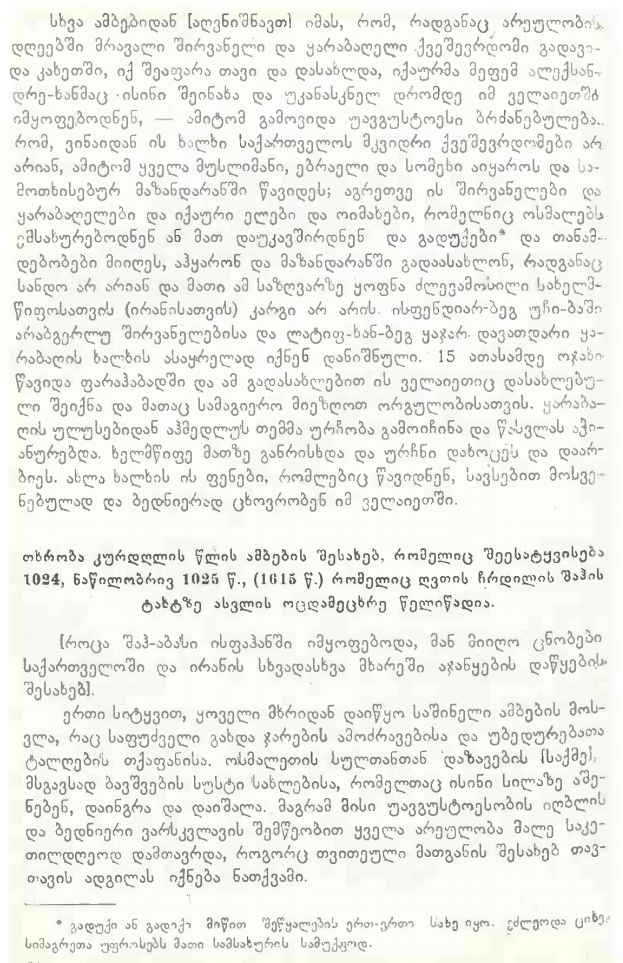 სხვა ამბებიდან [აღვნიშნავთ] იმას, რომ, რადგანაც არეულობის
დღეებში მრავალი შირვანელი და ყარაბაღელი ქვეშევრდომი გადავი-
და კახეთში, იქ შეაფარა თავი და დასახლდა, იქაურმა მეფემ ალექსან-
დრე-ხანმაც ისინი შეინახა და უკანასკნელ დრომდე იმ ველაიეთში
იმყოფებოდნენ, — ამიტომ გამოვიდა უავგუსტოესი ბრძანებულება..
რომ, ვინაიდან ის ხალხი საქართველოს მკვიდრი ქვეშევრდომები არ
არიან, ამიტომ ყველა მუსლიმანი, ებრაელი და სომეხი აიყაროს და სა-
მოთხისებურ მაზანდარანში წავიდეს; აგრეთვე ის შირვანელები და
ყარაბაღელები და იქაური ელები და ოიმახები, რომელნიც ოსმალებს
ემსახურებოდნენ ან მათ დაუკავშირდნენ და გადუქები* და თანამ-
დებობები მიიღეს, აჰყარონ და მაზანდარანში გადაასახლონ, რადგანაც
სანდო არ არიან და მათი ამ საზღვარზე ყოფნა ძლევამოსილი სახელმ-
წიფოსათვის (ირანისათვის) კარგი არ არის. ისფენდიარ-ბეგ უჩი-ბაში
არაბგერლუ შირვანელებისა და ლატიფ-ხან-ბეგ ყაჯარ. დავათდარი ყა-
რაბაღის ხალხის ასაყრელად იქნენ დანიშნული. 15 ათასამდე ოჯახი
წავიდა ფარაჰაბადში და ამ გადასახლებით ის ველაიეთიც დასახლებუ-
ლი შეიქნა და მათაც სამაგიერო მიეზღოთ ორგულობისათვის. ყარაბა-
ღის ულუსებიდან აჰმედლუს თემმა ურჩობა გამოიჩინა და წასვლას აჭი-
ანურებდა. ხელმწიფე მათზე განრისხდა და ურჩნი დახოცეს და დაარ-
ბიეს. ახლა ხალხის ის ფენები, რომლებიც წავიდნენ, სავსებით მოსვე-
ნებულად და ბედნიერად ცხოვრობენ იმ ველაიეთში.
თხრობა კურდღლის წლის ამბების შესახებ, რომელიც შეესატყვისება
1024, ნაწილობრივ 1025 წ., (1615 წ.) რომელიც ღვთის ჩრდილის შაჰის
ტახტზე ასვლის ოცდამეცხრე წელიწადია.
[როცა შაჰ-აბასი ისფაჰანში იმყოფებოდა, მან მიიღო ცნობები
საქართველოში და ირანის სხვადასხვა მხარეში აჯანყების დაწყების
შესახებ].
ერთი სიტყვით, ყოველი მხრიდან დაიწყო საშინელი ამბების მოს-
ვლა, რაც საფუძველი გახდა ჯარების ამოძრავებისა და უბედურებათა
ტალღების თქაფანისა. ოსმალეთის სულთანთან დაზავების [საქმე],
მსგავსად ბავშვების სუსტი სახლებისა, რომელთაც ისინი სილაზე აშე-
ნებენ, დაინგრა და დაიშალა. მაგრამ მისი უავგუსტოესობის იღბლის
და ბედნიერი ვარსკვლავის შემწეობით ყველა არეულობა მალე საკე-
თილდღეოდ დამთავრდა, როგორც თვითეული მათგანის შესახებ თავ-
თავის ადგილას იქნება ნათქვამი.
* გადუქი ან გადიქი მიწით შეწყალების ერთ-ერთი სახე იყო. ეძლეოდა ციხე-
სიმაგრეთა უფროსებს მათი სამსახურის სამუქფოდ.